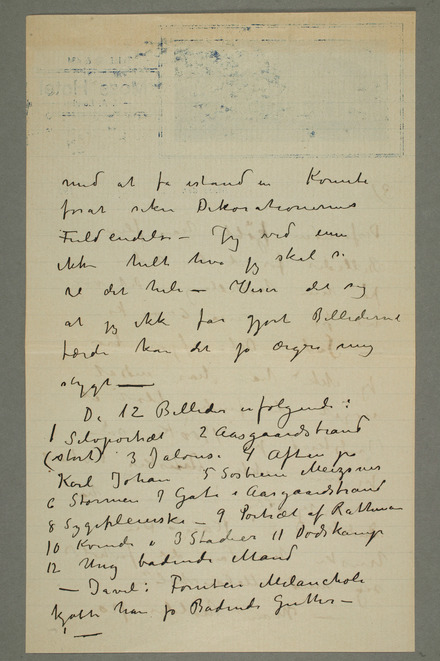 med at få istand en Komite
forat sikre Dekorationernes
Fuldendelse – Jeg ved enu
ikke helt hva jeg skal si
til det hele – Viser det sig
at jeg ikke får gjort Billederne
færdi kan det jo ærgre mig
stygt –
De 12 Billeder er følgende:
1 Selvportræt 2 Aasgaardstrand
(stort) 3 Jalousi 4 Aften på
Karl Johan 5 Søstrene Meissner
6 Stormen 7 Gate i Aasgaardstrand
8 Sygeplejerske – 9 Portræt af Rathenau
10 Kvinde i 3 Stadier 11 Dødskamp
12 Ung badende Mand
– Foruten Melancholi
kjøbte han jo Badende Gutter –